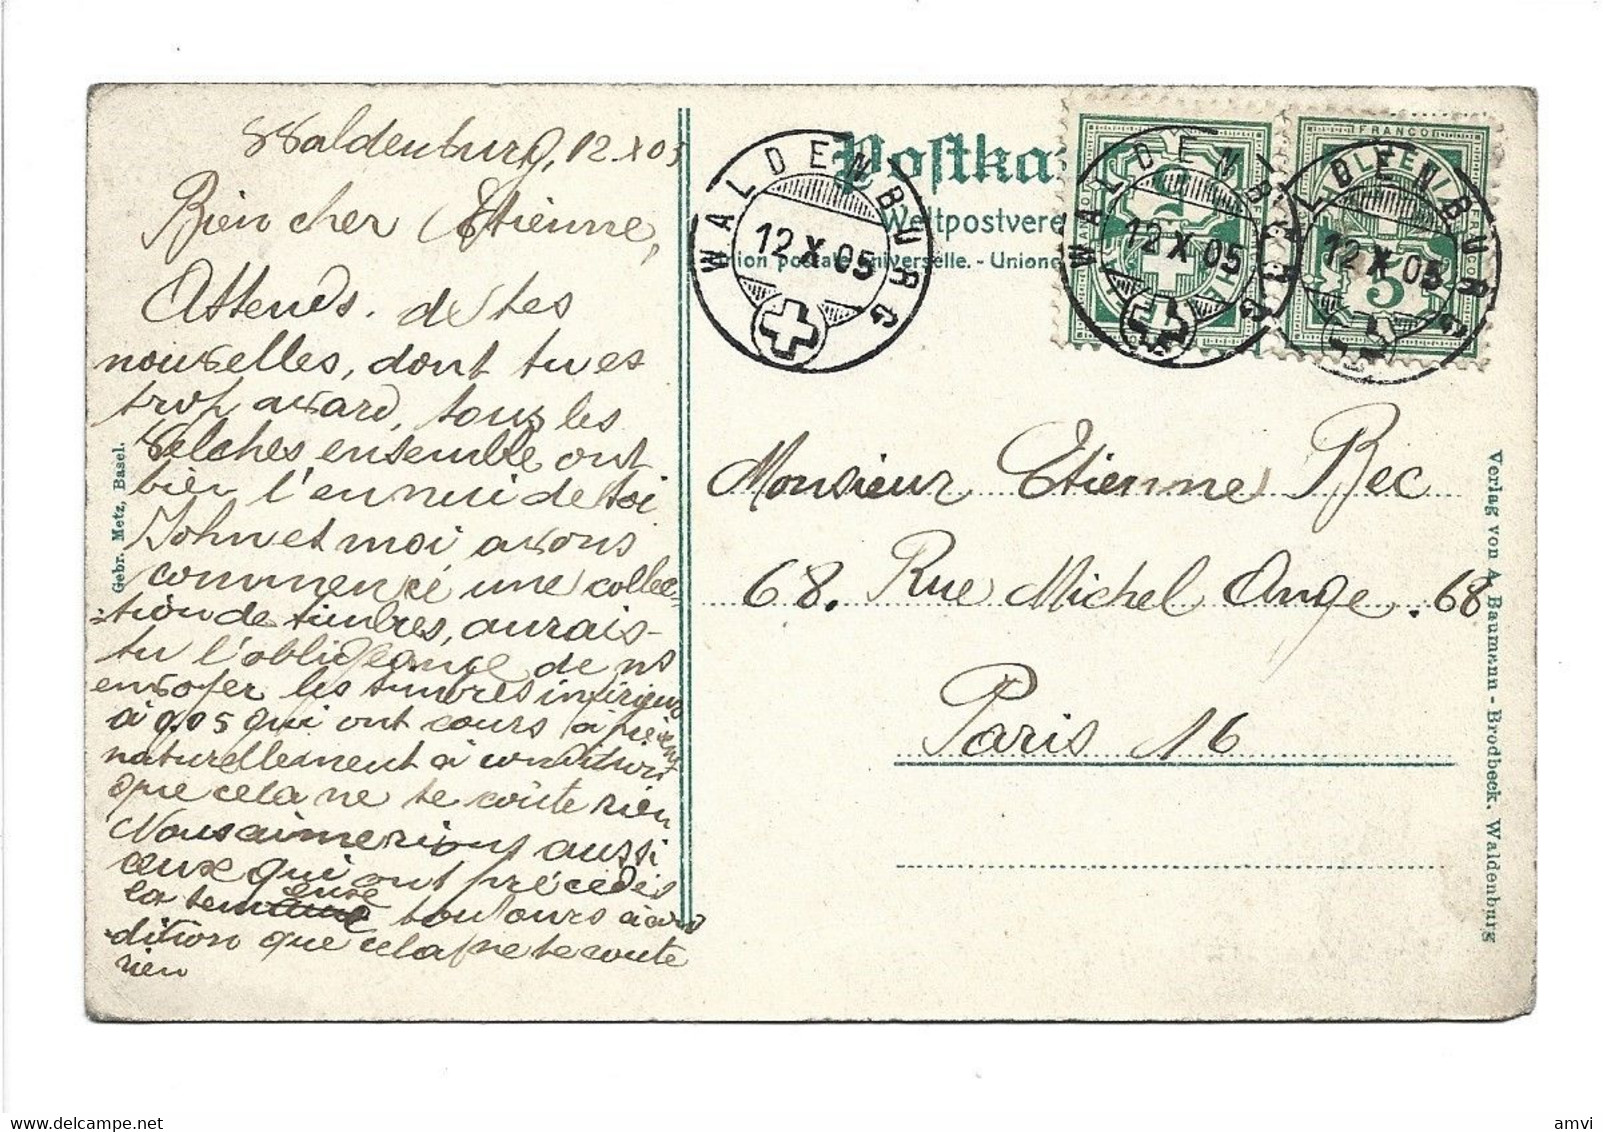 Waldenburg, 12 X 05
Bien cher Etienne,
Attends. de tes
nouvelles, dont tu es
trop avare, tous les
Selches ensemble ont
bien l'ennui de toi
John et moi avons
commencé une collec=
=tion de timbres, aurais-
tu l'obligeance de ns
envoyer les timbres inférieurs
à 0.05 qui ont cours à présent
naturellement à condition
que cela ne te coûte rien
Nous aimerions aussi
ceux qui ont précédés
la semeuse toujours à con
dition que cela ne te coute
rien
Gebr. Metz, Basel.
Postka
Weltpostvere
Union postale universelle. - Unione
WALDENBURG
12 X 05
WALDENBURG
12 X 05
WALDENBURG
12 X 05
FRANCO
HELVETIA
5
Monsieur Etienne Bec
68. Rue Michel Ange. 68
Paris 16
Verlag von A. Baumann - Brodbeck, Waldenburg
amvi